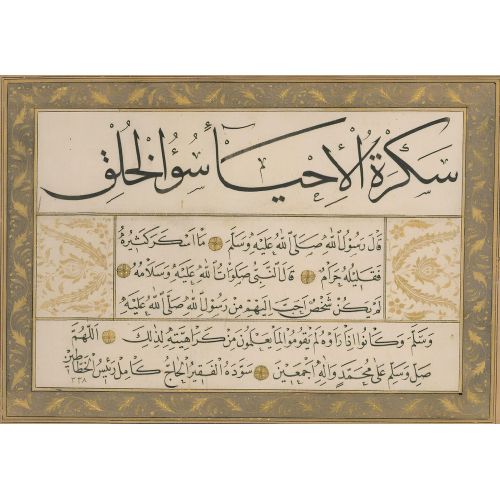 سكرة الأحياء سوء الخلق
قال رسول الله صلى الله عليه وسلم ما أسكر كثيره
فقليله حرام قال النبي صلوات الله عليه وسلامه
لم يكن شخص أحب إليهم من رسول الله صلى الله عليه
وسلم وكانوا إذا رأوه لم يقوموا لما يعلمون من كراهيته لذلك اللهم
صل وسلم على محمد وآله أجمعين سوده الفقير الحاج كامل رئيس الخطاطين